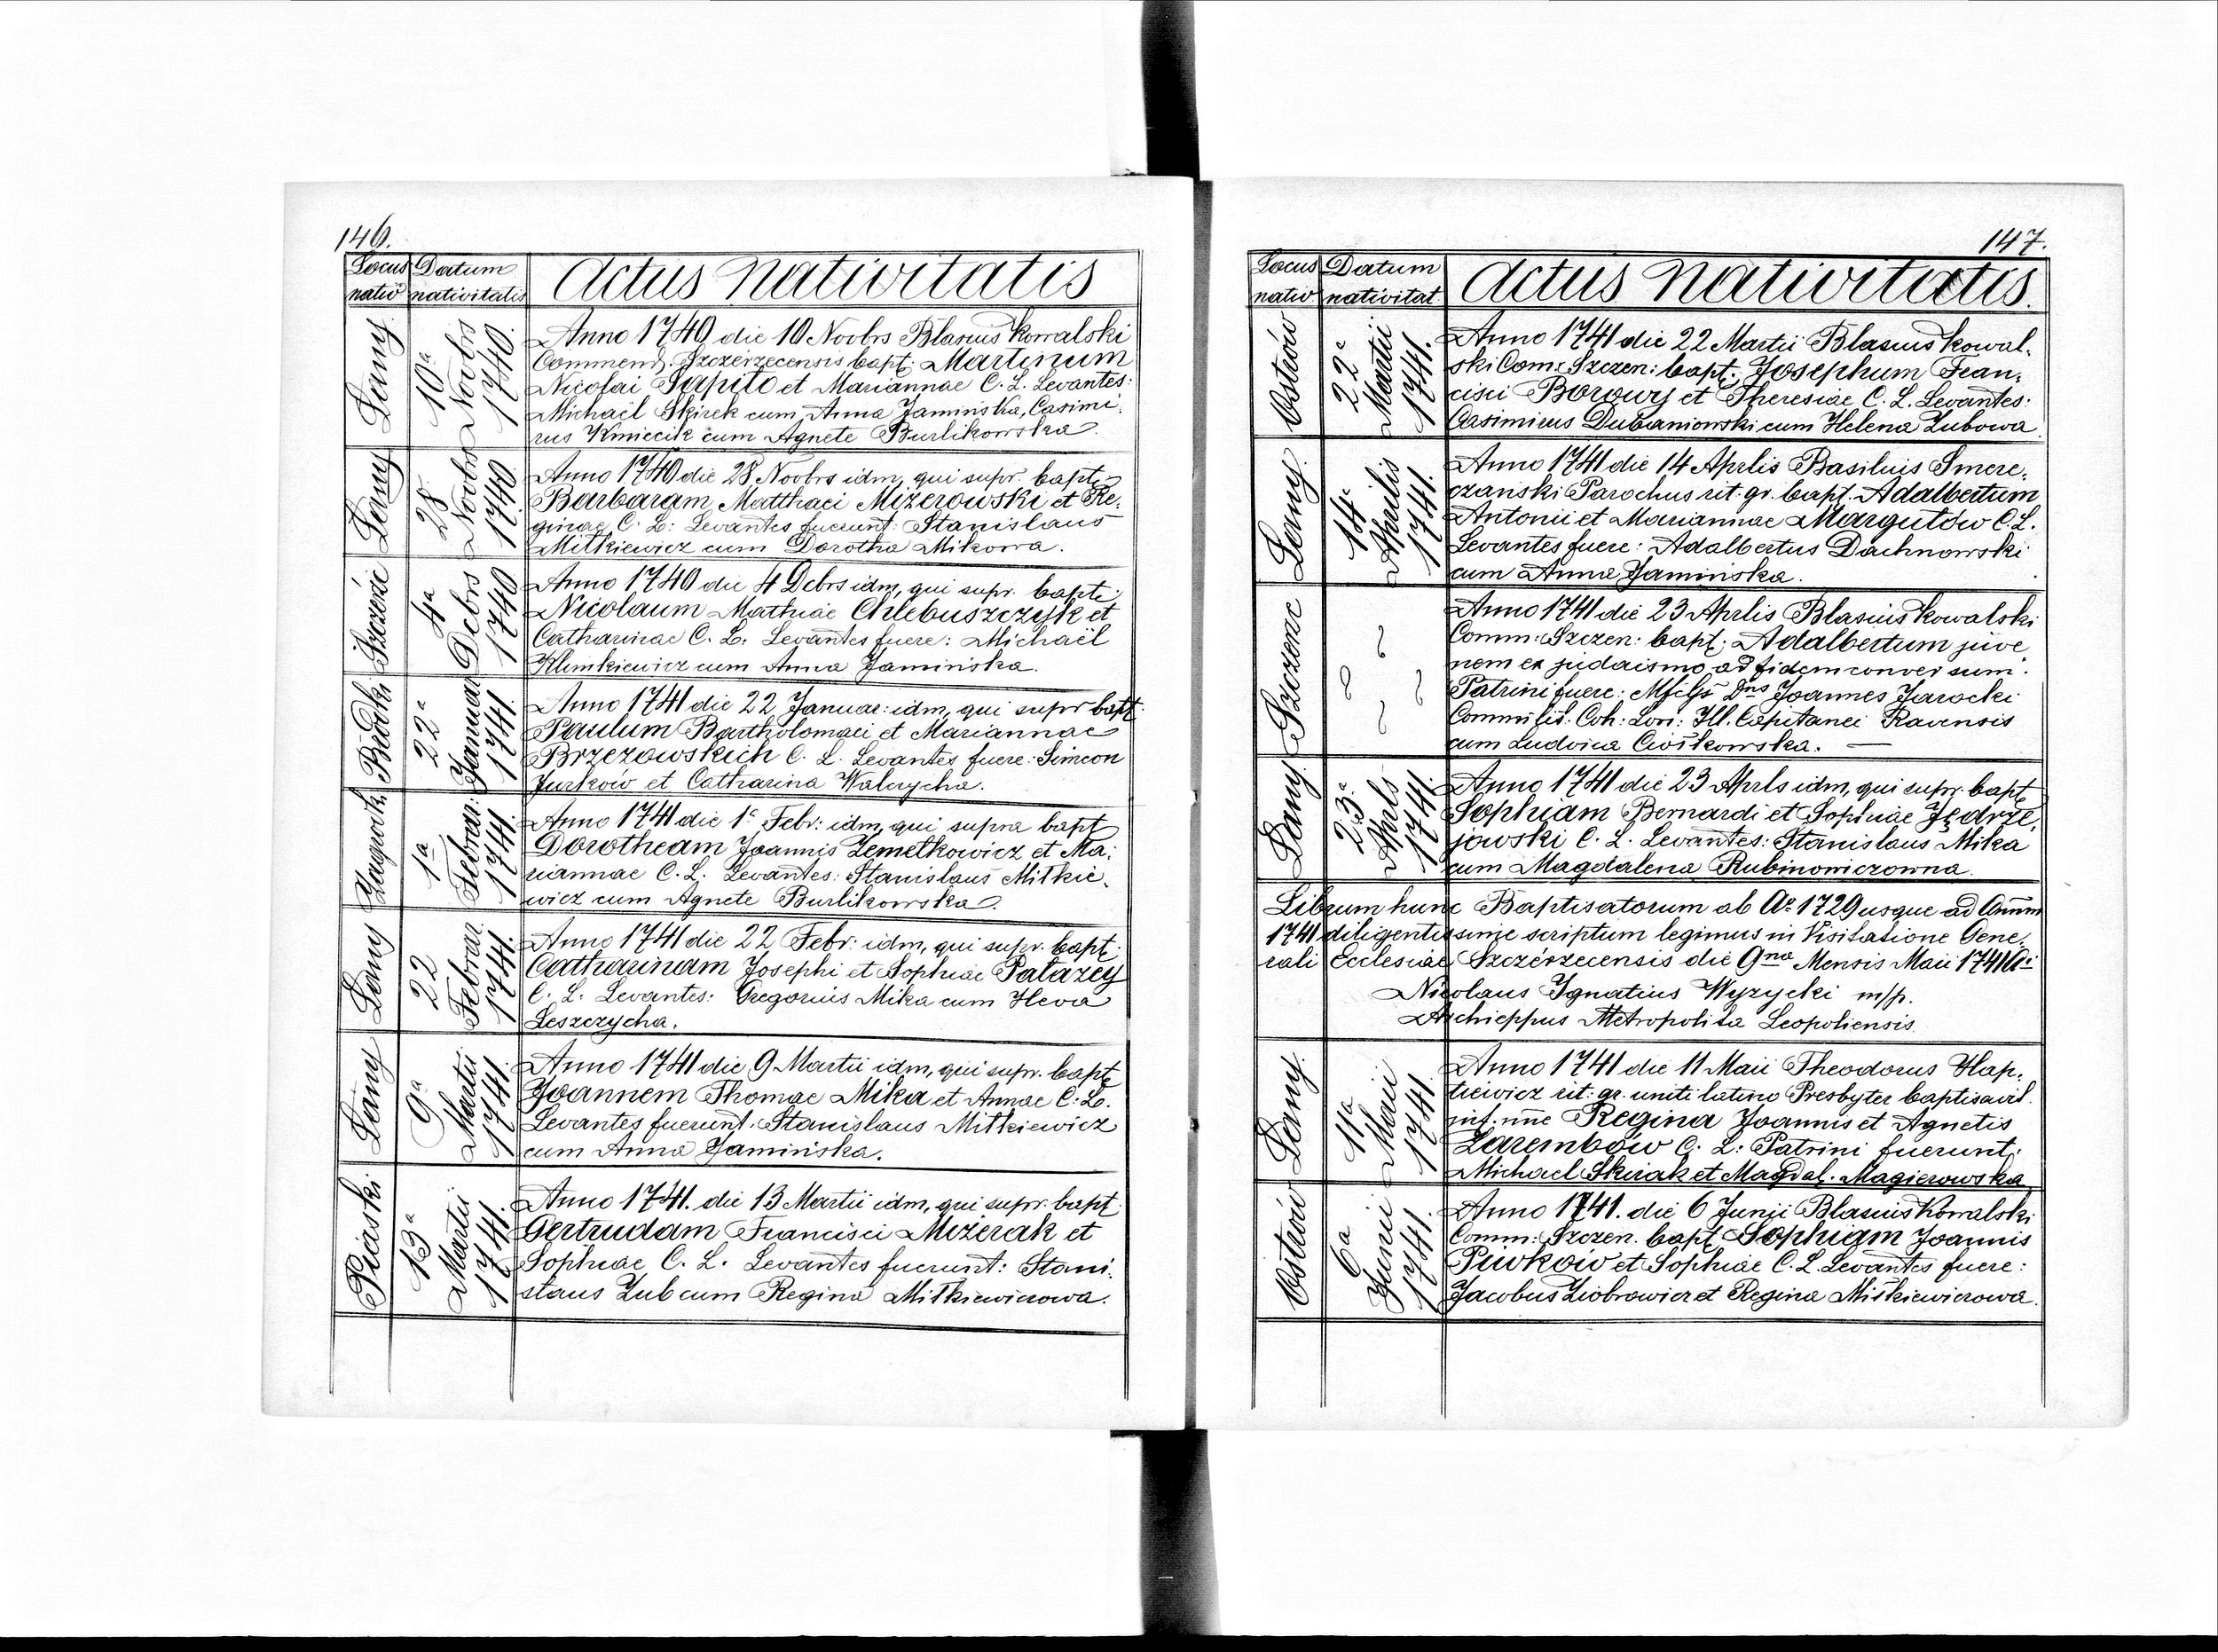 146.
Locus nativ
Datum nativitatis
Actus nativitatis
Łany
10a Novbrs 1740.
Anno 1740 die 10 Novbrs Blasius Kowalski
Commend. Szczerzecensis bapt. Martinum
Nicolai Sapito et Mariannae C. L. Levantes:
Michaël Skirek cum Anna Jamińska, Casimi-
rus Kmiecik cum Agnete Burlikowska.
Łany
28 Novbrs 1740
Anno 1740 die 28 Novbrs idm, qui supr. bapt:
Barbaram Matthaei Mizerowski et Re-
ginae C. L: Levantes fuerunt: Stanislaus
Mitkiewicz cum Dorothea Mikowa.
Szczerec
4a Debrs 1740
Anno 1740 die 4 Debrs idm, qui supr. bapt:
Nicolaum Mathiae Chlebuszczyk et
Catharinae C. L. Levantes fuere: Michaël
Klimkiewicz cum Anna Jamińska.
Rudki
22a Januar 1741.
Anno 1741 die 22 Januar: idm, qui supr bapt:
Paulum Bartholomaei et Mariannae
Brzezowskich C. L. Levantes fuere: Simeon
Jurków et Catharina Walerycha.
1a Februar: 1741.
Anno 1741 die 1a Febr: idm, qui supra bapt
Dorotheam Joannis Zemetkowicz et Ma-
riannae C. L. Levantes: Stanislaus Mitkie-
wicz cum Agnete Burlikowska.
Łany
22 Februar. 1741.
Anno 1741 die 22 Febr: idm, qui supr. bapt:
Catharinam Josephi et Sophiae Patazey
C. L. Levantes: Gregorius Mika cum Heva
Leszczycha.
Łany
9a Martii 1741.
Anno 1741 die 9 Martii idm, qui supr. bapt:
Joannem Thomae Mika et Annae C: L.
Levantes fuerunt. Stanislaus Mitkiewicz
cum Anna Jamińska.
Piaski
13a Martii 1741.
Anno 1741. die 13 Martii idm, qui supr. bapt:
Gertrudam Francisci Mizerak et
Sophiae C. L. Levantes fuerunt: Stani-
slaus Zub cum Regina Mitkiewiczowa.
147.
Locus nativ
Datum nativitat
Actus nativitatis.
Ostrów
22a Martii 1741.
Anno 1741 die 22 Martii Blasius Kowal-
ski Com: Szczen: bapt: Josephum Fran-
cisci Borowy et Theresiae C. L. Levantes:
Casimirus Dubaniowski cum Helena Zubowa
Łany.
14a Aprilis 1741.
Anno 1741 die 14 Aprlis Basilius Smere-
czanski Parochus rit. gr. bapt. Adalbertum
Antonii et Mariannae Margutów C. L.
Levantes fuere: Adalbertus Dachnowski
cum Anna Jamińska.
Szczerzec
Anno 1741 die 23 Aprlis Blasius Kowalski
Comm: Szczen: bapt: Adalbertum juve
nem ex judaismo ad fidem conversum.
Patrini fuere: Dns Joannes Jarocki
Commilit. Coh: Lori: Ill. Capitanei Ravensis
cum Ludvica Ciotkowska. —
Łany
23a Aprls 1741.
Anno 1741 die 23 Aprls idm, qui supr. bapt
Sophiam Bernardi et Sophiae Jędrze-
jowski C. L. Levantes: Stanislaus Mika
cum Magdalena Rubinowiczowna.
Librum hunc Baptisatorum ab Ao 1729 usque ad Annum
1741 diligentissime scriptum legimus in Visitatione Gene-
rali Ecclesiae Szczerzecensis die 9na Mensis Maii 1741 Ai
Nicolaus Ignatius Wyzycki m/p.
Archieppus Metropolita Leopoliensis.
Łany.
11a Maii 1741
Anno 1741 die 11 Maii Theodorus Hap-
tiewicz rit: gr. uniti latino Presbyter baptisavit
inf. nne Regina Joannis et Agnetis
Zarembów C. L: Patrini fuerunt:
Michael Skirak et Magdal. Magierowska
Ostrów
6a Junii 1741.
Anno 1741. die 6 Junii Blasius Kowalski
Comm: Szczen. bapt Sophiam Joannis
Piwków et Sophiae C. L. Levantes fuere:
Jacobus Ziobrowicz et Regina Miśkiewiczowa.